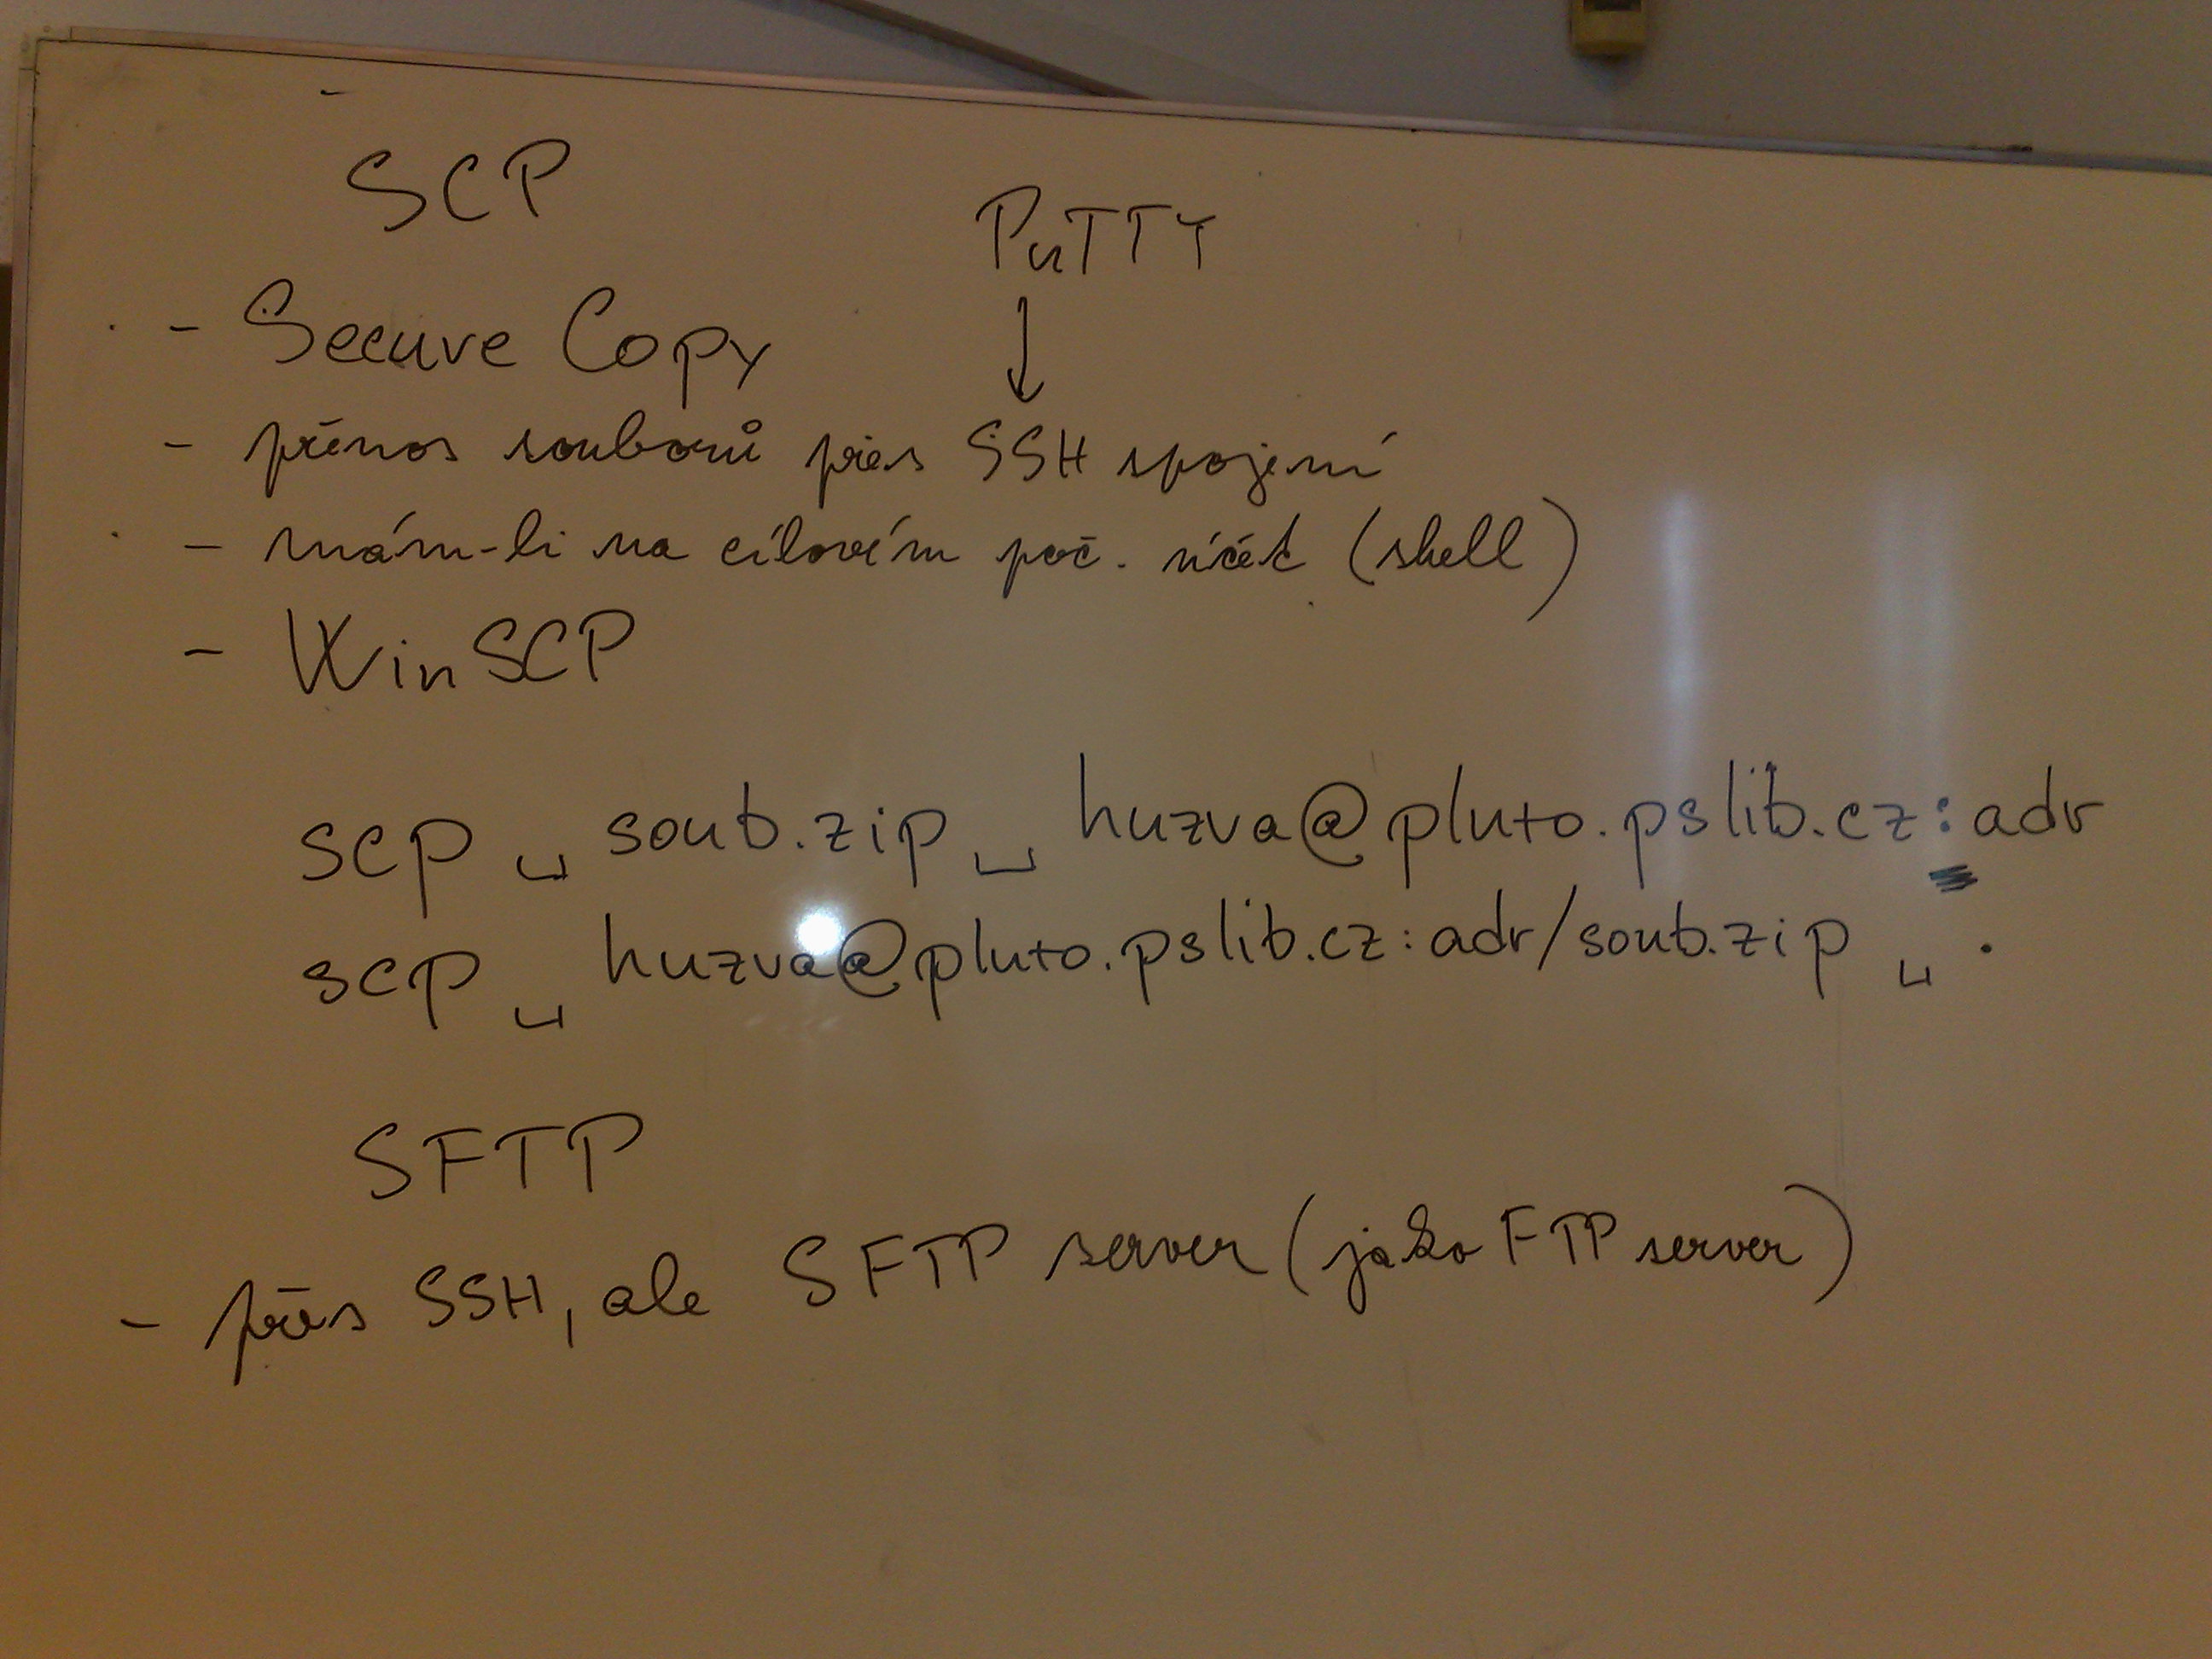 SCP
PuTTY
- Secure Copy
- přenos souborů přes SSH spojení
- mám-li na cílovém poč. účet (shell)
- WinSCP
scp ␣ soub.zip ␣ huzva@pluto.pslib.cz:adr
scp ␣ huzva@pluto.pslib.cz:adr/soub.zip ␣ .
SFTP
- přes SSH, ale SFTP server (jako FTP server)